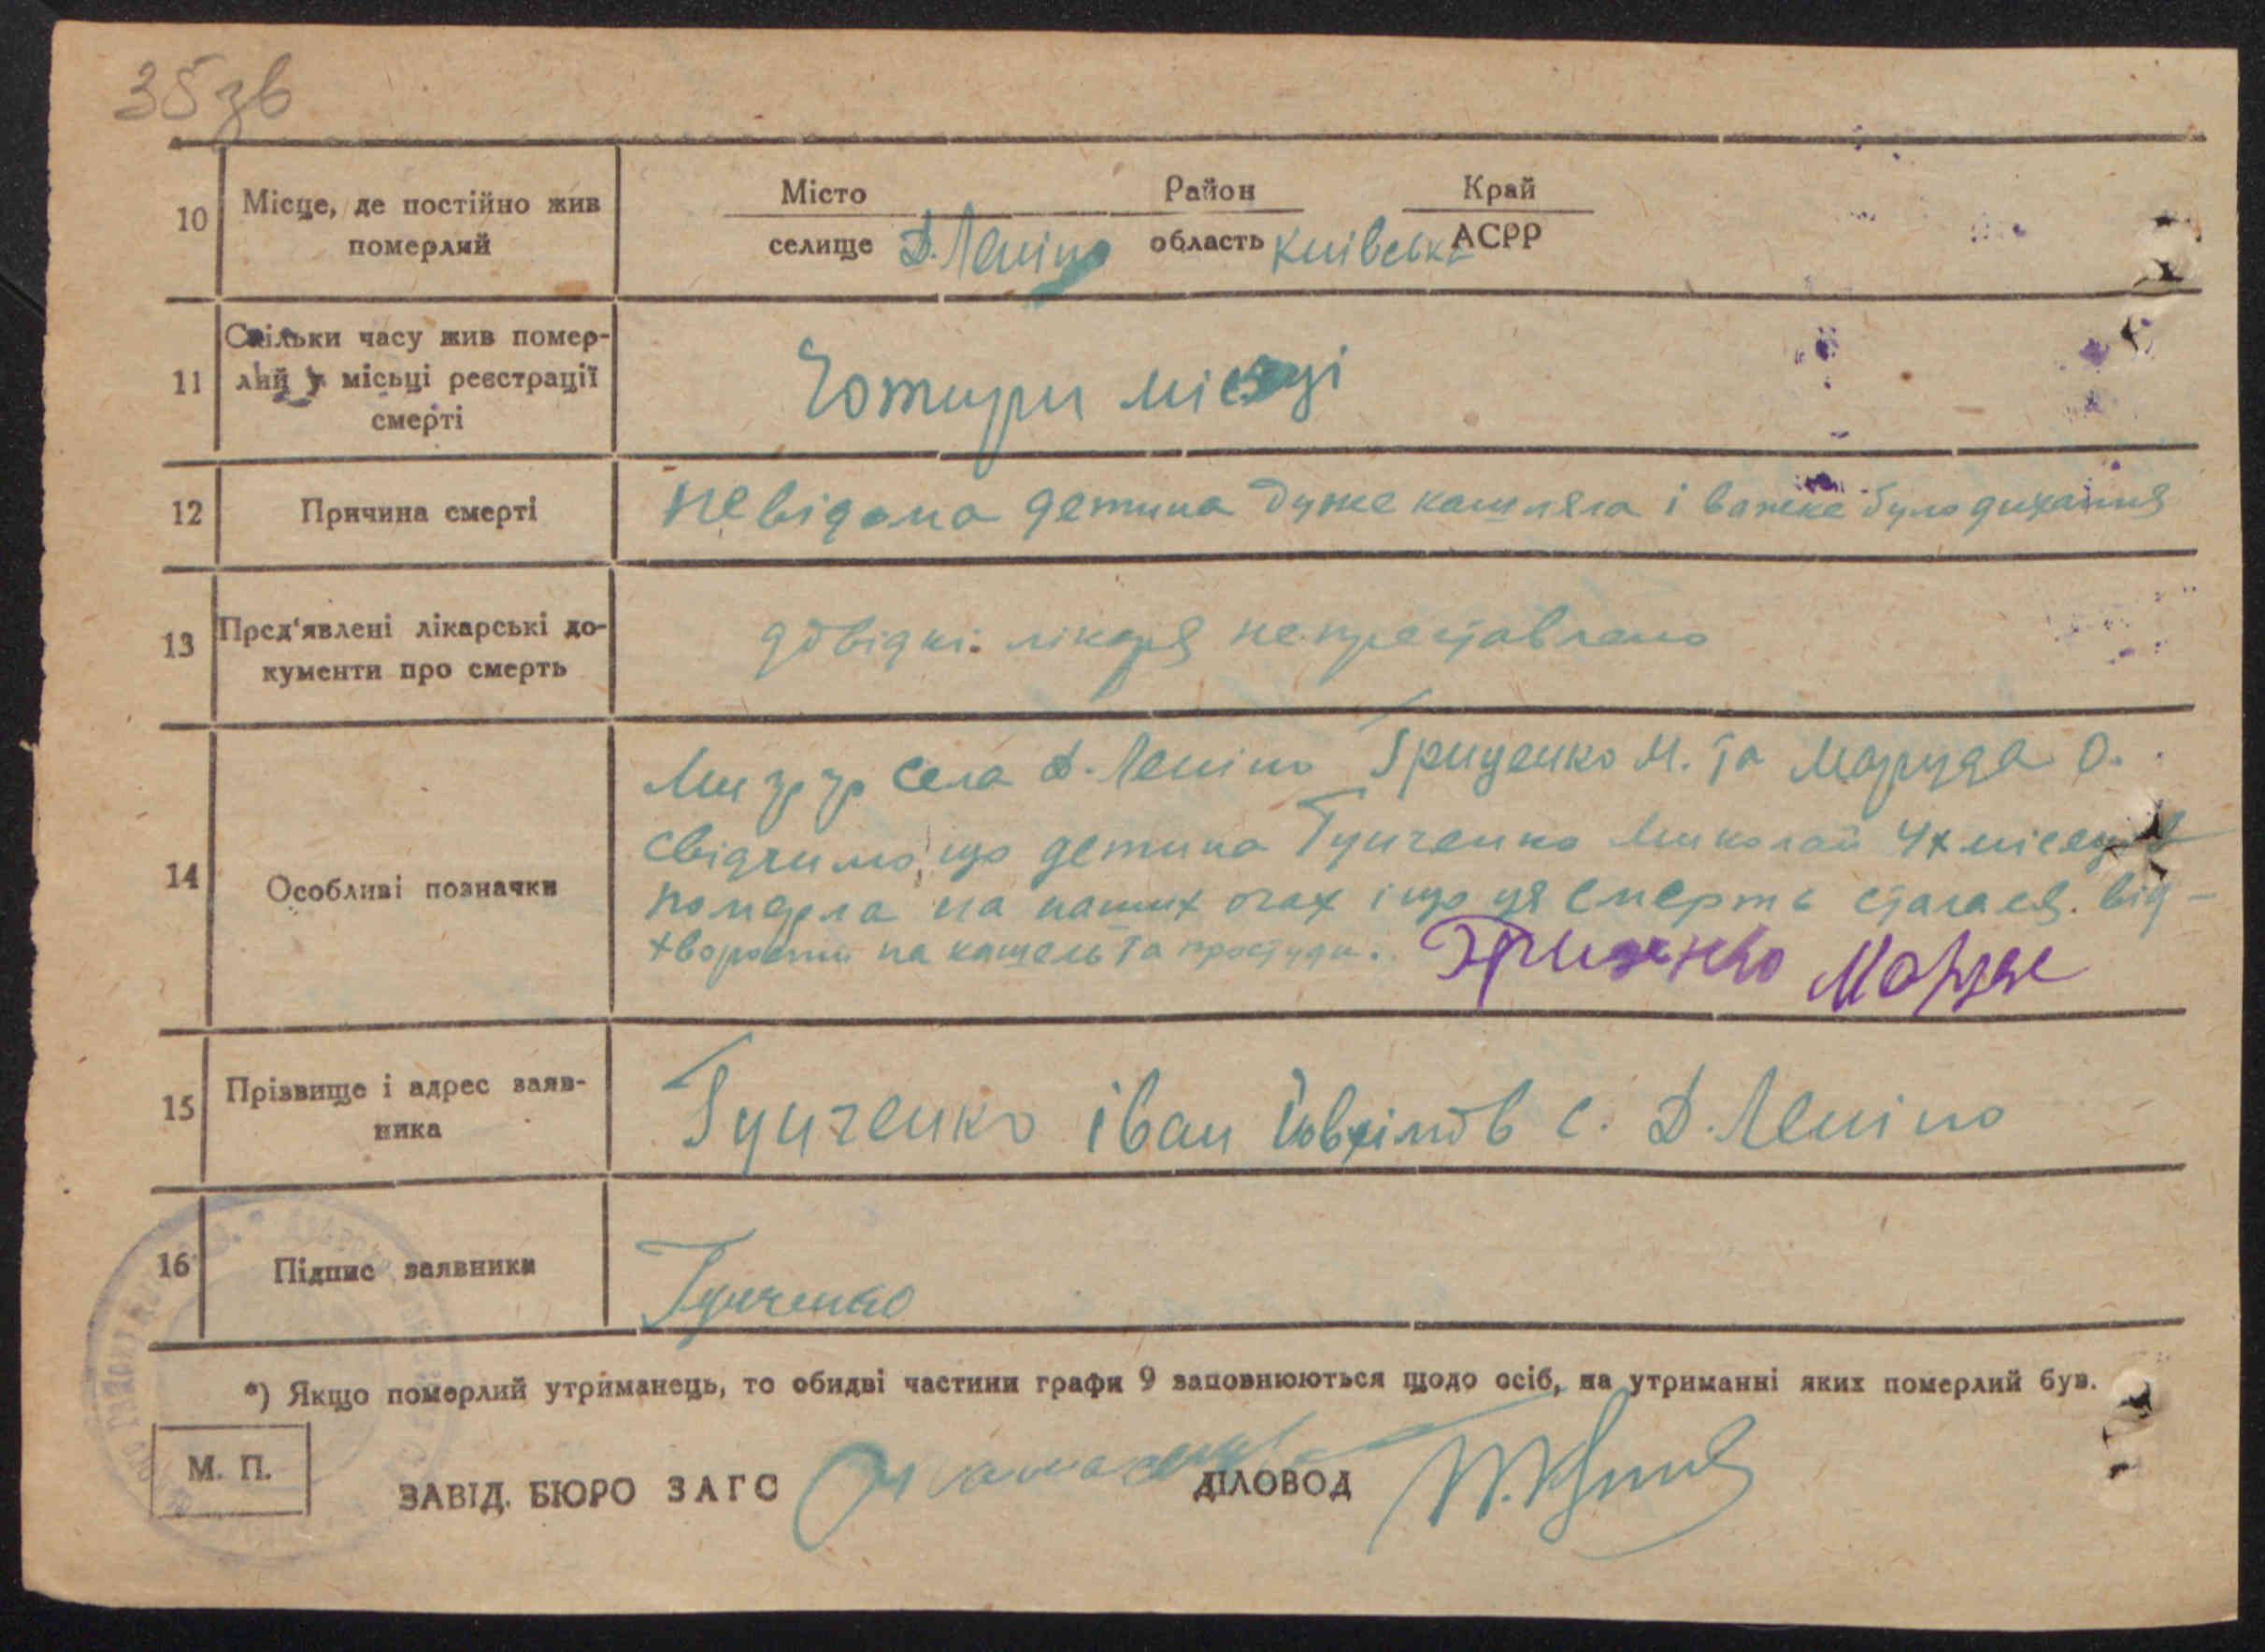 35зв
10 Місце, де постійно жив померлий
Місто Район Край
селище Д. Леніно область Київська АСРР
11 Скільки часу жив помер-
лий у місьці реєстрації
смерті
Чотири місяці
12 Причина смерті невідома детина дуже кашляла і важке було дихання
13 Пред'явлені лікарські до-
кументи про смерть
довідкі лікаря непредставлено
14 Особливі позначки
Ми гр гр села Д. Леніно Гриценко М. та Маруда О.
свідчимо, що детина Гунченко Миколай 4х місецив
померла на наших очах і що ця смерть сталась від-
хворости на кашель та простуди. Гриценко
15 Прізвище і адрес заяв-
ника
Гунченко іван с. Д. Леніно
16 Підпис заявника Гунченко
*) Якщо померлий утриманець, то обидві частини графи 9 заповнюються щодо осіб, на утриманні яких померлий був.
М. П.
ЗАВІД. БЮРО ЗАГС ДІЛОВОД